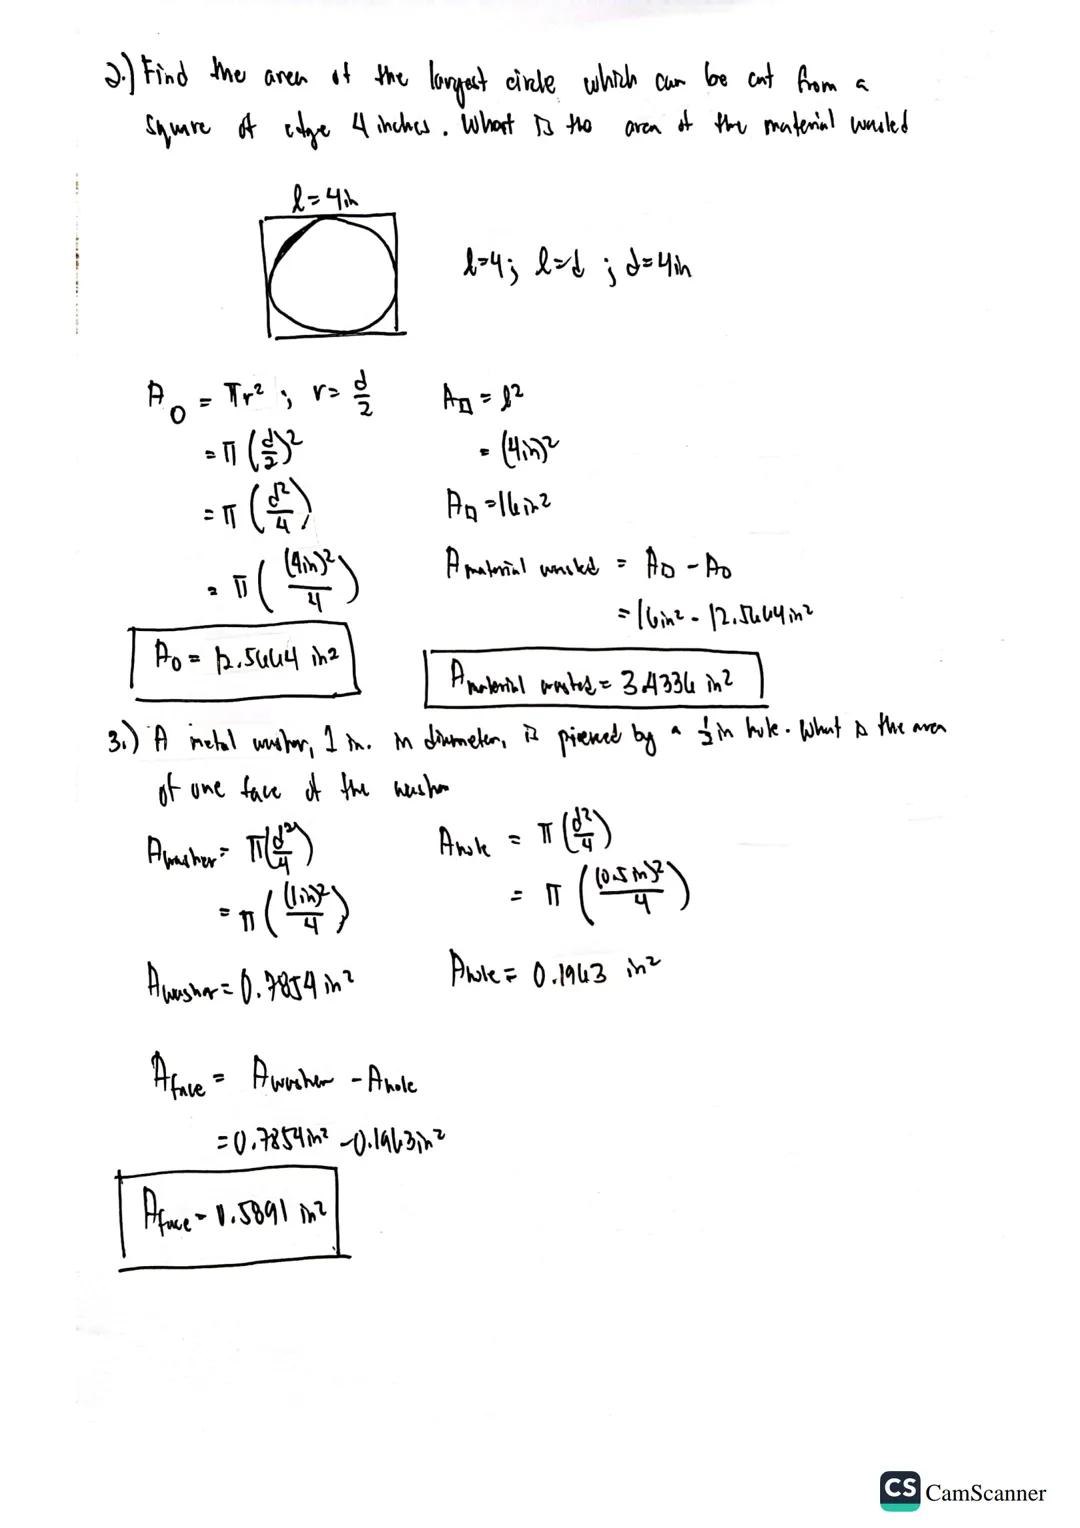 2.) Find the area of the largest circle which can be cut from a
square of edge 4 inches. What is the area of the material wasted
l = 4in
l=4; l=d; d=4in
A○ = πr²; r = d/2
= π(d/2)²
= π(d²/4)
= π((4in)²/4)
A○ = 12.5664 in²
A□ = l²
= (4in)²
A□ = 16in²
A material wasted = A□ - A○
= 16in² - 12.5664in²
A material wasted = 3.4336 in²
3.) A metal washer, 1 in. in diameter, is pierced by a 1/2 in hole. What is the area
of one face of the washer
A washer = π(d²/4)
= π((1in)²/4)
A washer = 0.7854 in²
A hole = π(d²/4)
= π((0.5in)²/4)
A hole = 0.1963 in²
A face = A washer - A hole
= 0.7854in² - 0.1963in²
A face = 0.5891 in²
CS CamScanner